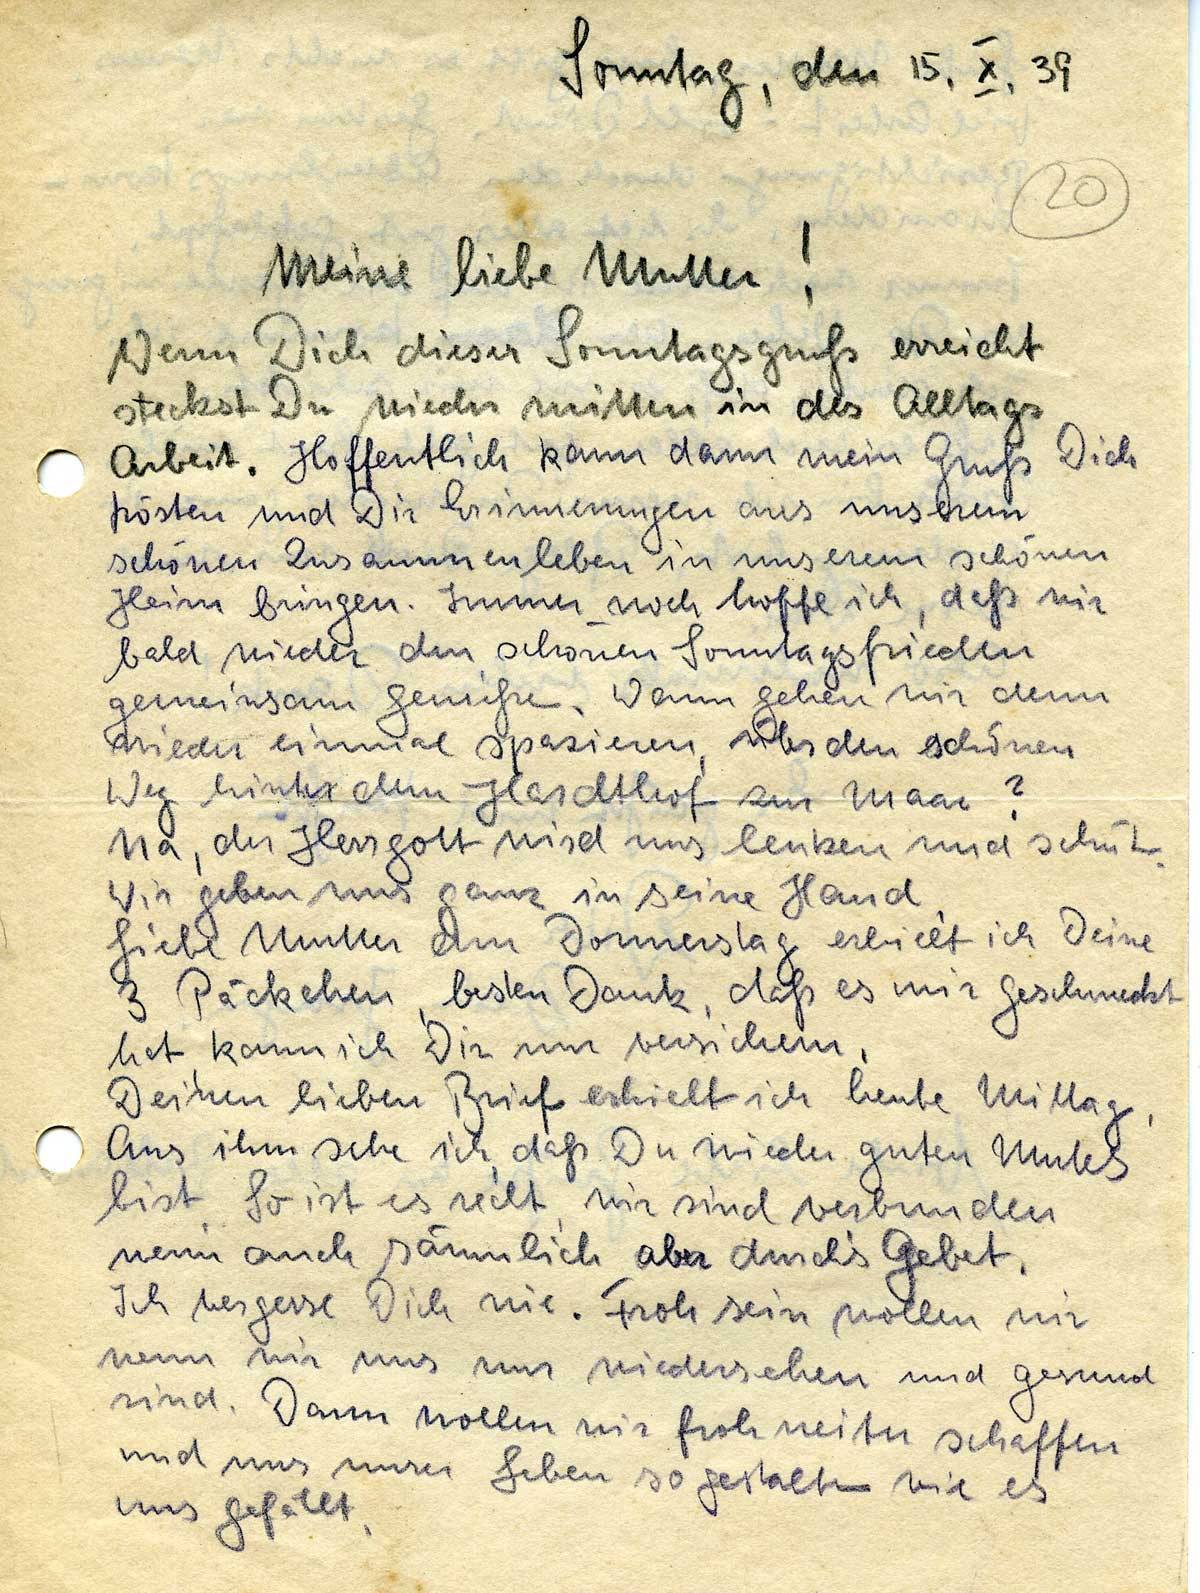 Sonntag, den 15. X. 39
20
Meine liebe Mutter!
Wenn Dich dieser Sonntagsgruß erreicht
steckst Du wieder mitten in des Alltags
Arbeit. Hoffentlich kann dann mein Gruß Dich
trösten und Dir Erinnerungen aus unserem
schönen Zusammenleben in unserem schönen
Heim bringen. Immer noch hoffe ich, daß wir
bald wieder den schönen Sonntagsfrieden
gemeinsam genießen. Wann gehen wir denn
wieder einmal spazieren, über den schönen
Weg hinter dem Hardthof zur Maar?
Na, der Herrgott wird uns lenken und schütz.
Wir geben uns ganz in seine Hand
Liebe Mutter am Donnerstag erhielt ich Deine
3 Päckchen, besten Dank, daß es mir geschmeckt
hat, kann ich Dir nur versichern.
Deinen lieben Brief erhielt ich heute Mittag,
Aus ihm sehe ich, daß Du wieder guten Mutes
bist. So ist es recht, wir sind verbunden
wenn auch räumlich aber durch's Gebet.
Ich vergesse Dich nie. Froh sein wollen wir
wenn wir uns nur wiedersehen und gesund
sind. Dann wollen wir froh weiter schaffen
und uns unser Leben so gestalten wie es
uns gefällt.